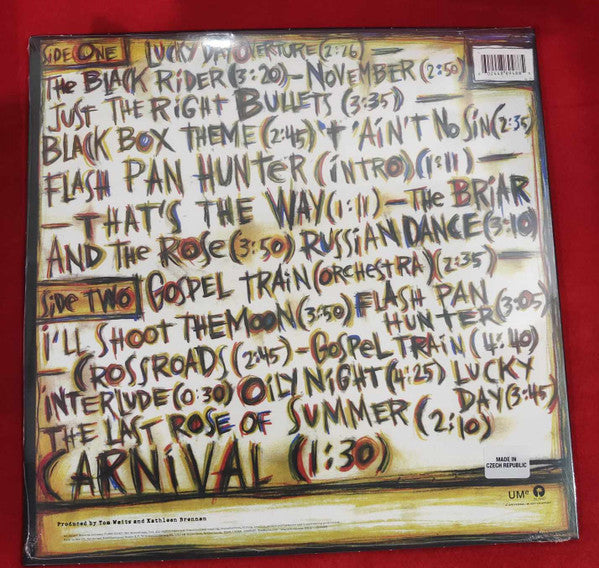 SIDE ONE LUCKY DAY OVERTURE (2:26)
THE BLACK RIDER (3:20) – NOVEMBER (2:50)
JUST THE RIGHT BULLETS (3:35)
BLACK BOX THEME (2:45) 'T 'AIN'T NO SIN (2:35)
FLASH PAN HUNTER (INTRO) (1:11) –
– THAT'S THE WAY (1:11) – THE BRIAR
AND THE ROSE (3:50) RUSSIAN DANCE (3:10)
SIDE TWO GOSPEL TRAIN (ORCHESTRA) (2:35) –
I'LL SHOOT THE MOON (3:50) FLASH PAN
HUNTER (3:05)
– CROSSROADS (2:45) – GOSPEL TRAIN (4:40)
INTERLUDE (0:30) OILY NIGHT (4:25) LUCKY
DAY (3:45)
THE LAST ROSE OF SUMMER (2:10)
CARNIVAL (1:30)
MADE IN
CZECH REPUBLIC
UMe
Produced by Tom Waits and Kathleen Brennan